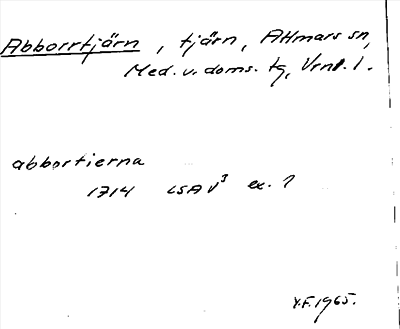 Abborrtjärn, tjärn, Attmars sn,
Med. v. doms. tg, Vrnl. l.
abbortierna
1714 LSA V³ ex. 1
Y.F. 1965.